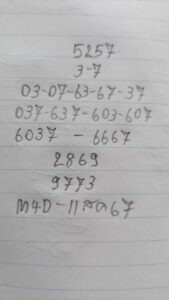 5257
3-7
03-07-63-67-37
037-637-603-607
6037 - 6667
2869
9773
M4D-11สด67